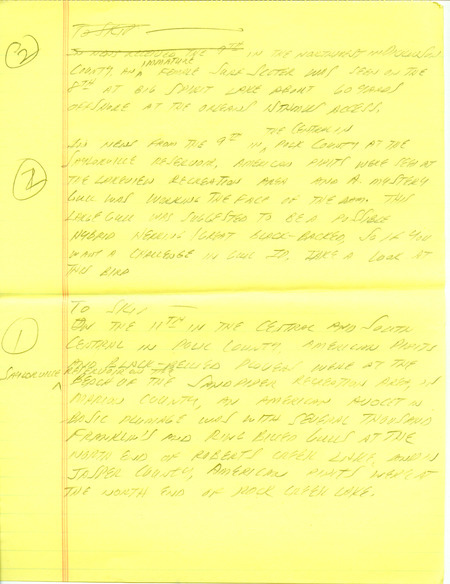 3
TO SKIP
IN NEWS RECEIVED THE 9TH IN THE NORTHWEST IN DICKINSON
COUNTY, AN IMMATURE FEMALE SURF SCOTER WAS SEEN ON THE
8TH AT BIG SPIRIT LAKE ABOUT 60 YARDS
OFFSHORE AT THE ORLEANS ISTHMUS ACCESS.
2
IN NEWS FROM THE 9TH IN THE CENTRAL IN, POLK COUNTY AT THE
SAYLORVILLE RESERVOIR, AMERICAN PIPITS WERE SEEN AT
THE LAKEVIEW RECREATION AREA AND A MYSTERY
GULL WAS WORKING THE FACE OF THE DAM. THIS
LARGE GULL WAS SUGGESTED TO BE A POSSIBLE
HYBRID HERRING/GREAT BLACK-BACKED, SO IF YOU
WANT A CHALLENGE IN GULL ID, TAKE A LOOK AT
THIS BIRD
1
TO SKIP
ON THE 11TH IN THE CENTRAL AND SOUTH
CENTRAL IN POLK COUNTY, AMERICAN PIPITS
AND BLACK-BELLIED PLOVER WERE AT THE
SAYLORVILLE RESERVOIR ON THE
BEACH OF THE SANDPIPER RECREATION AREA, IN
MARION COUNTY, AN AMERICAN AVOCET IN
BASIC PLUMAGE WAS WITH SEVERAL THOUSAND
FRANKLIN'S AND RING BILLED GULLS AT THE
NORTH END OF ROBERTS CREEK LAKE, AND IN
JASPER COUNTY, AMERICAN PIPITS WERE AT
THE NORTH END OF ROCK CREEK LAKE.